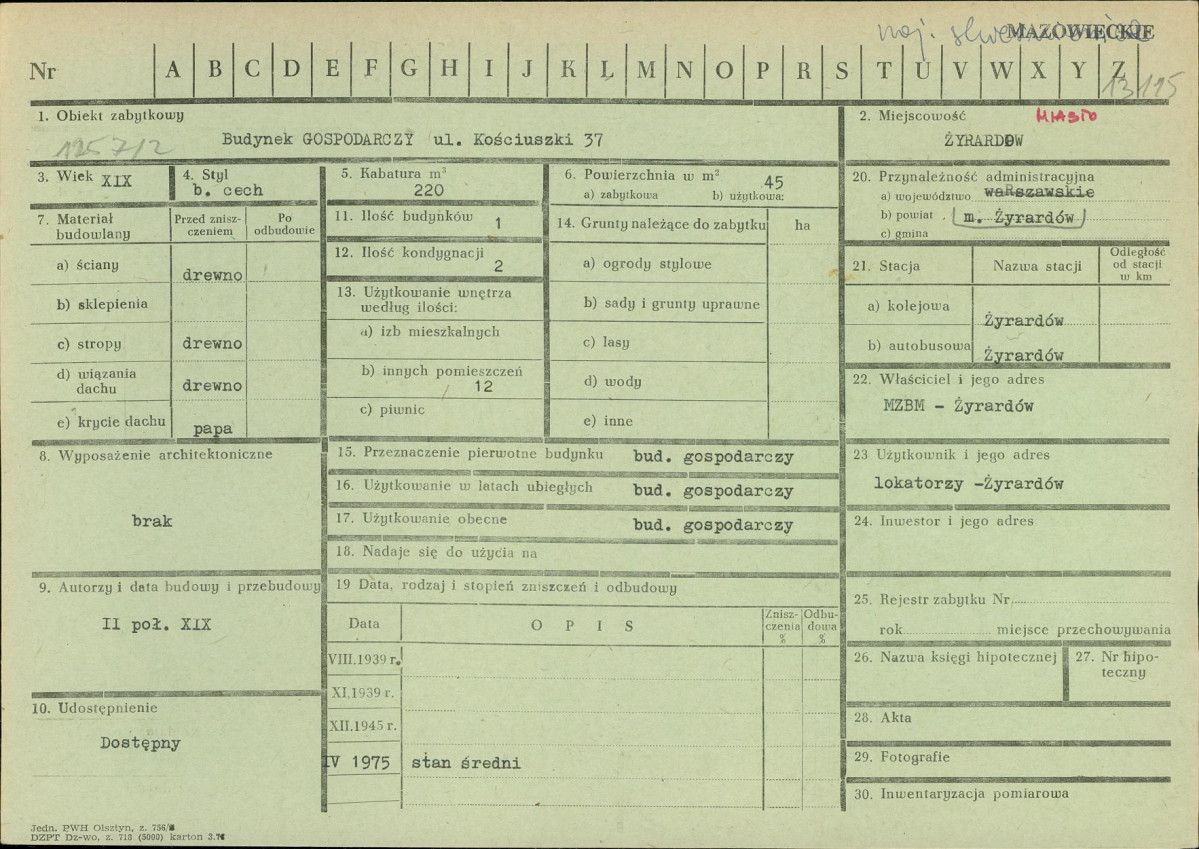 woj. skierniewickie MAZOWIECKIE
Nr A B C D E F G H I J K L M N O P R S T U V W X Y Z
13/125
1. Obiekt zabytkowy
Budynek GOSPODARCZY ul. Kościuszki 37
1257/2
2. Miejscowość MIASTO
ŻYRARDÓW
3. Wiek XIX
4. Styl
b. cech
5. Kabatura m³
220
6. Powierzchnia w m² 45
a) zabytkowa b) użytkowa:
20. Przynależność administracyjna
a) województwo warszawskie
b) powiat . m. Żyrardów
c) gmina
7. Materiał budowlany
Przed znisz-
czeniem
Po
odbudowie
a) ściany drewno
b) sklepienia
c) stropy drewno
d) wiązania
dachu drewno
e) krycie dachu papa
11. Ilość budynków 1
12. Ilość kondygnacji
2
13. Użytkowanie wnętrza
według ilości:
a) izb mieszkalnych
b) innych pomieszczeń
12
c) piwnic
14. Grunty należące do zabytku ha
a) ogrody stylowe
b) sady i grunty uprawne
c) lasy
d) wody
e) inne
21. Stacja Nazwa stacji
Odległość
od stacji
w km
a) kolejowa Żyrardów
b) autobusowa Żyrardów
22. Właściciel i jego adres
MZBM - Żyrardów
8. Wyposażenie architektoniczne
brak
15. Przeznaczenie pierwotne budynku bud. gospodarczy
16. Użytkowanie w latach ubiegłych bud. gospodarczy
17. Użytkowanie obecne bud. gospodarczy
18. Nadaje się do użycia na
23 Użytkownik i jego adres
lokatorzy -Żyrardów
24. Inwestor i jego adres
9. Autorzy i data budowy i przebudowy
II poł. XIX
19 Data, rodzaj i stopień zniszczeń i odbudowy
Data OPIS
Znisz-
czenia
%
Odbu-
dowa
%
VIII.1939 r.
XI.1939 r.
XII.1945 r.
IV 1975 stan średni
25. Rejestr zabytku Nr
rok miejsce przechowywania
26. Nazwa księgi hipotecznej
27. Nr hipo-
teczny
10. Udostępnienie
Dostępny
28. Akta
29. Fotografie
30. Inwentaryzacja pomiarowa
Jedn. PWH Olsztyn, z. 756/
DZPT Dz-wo, z. 713 (5000) karton 3.74